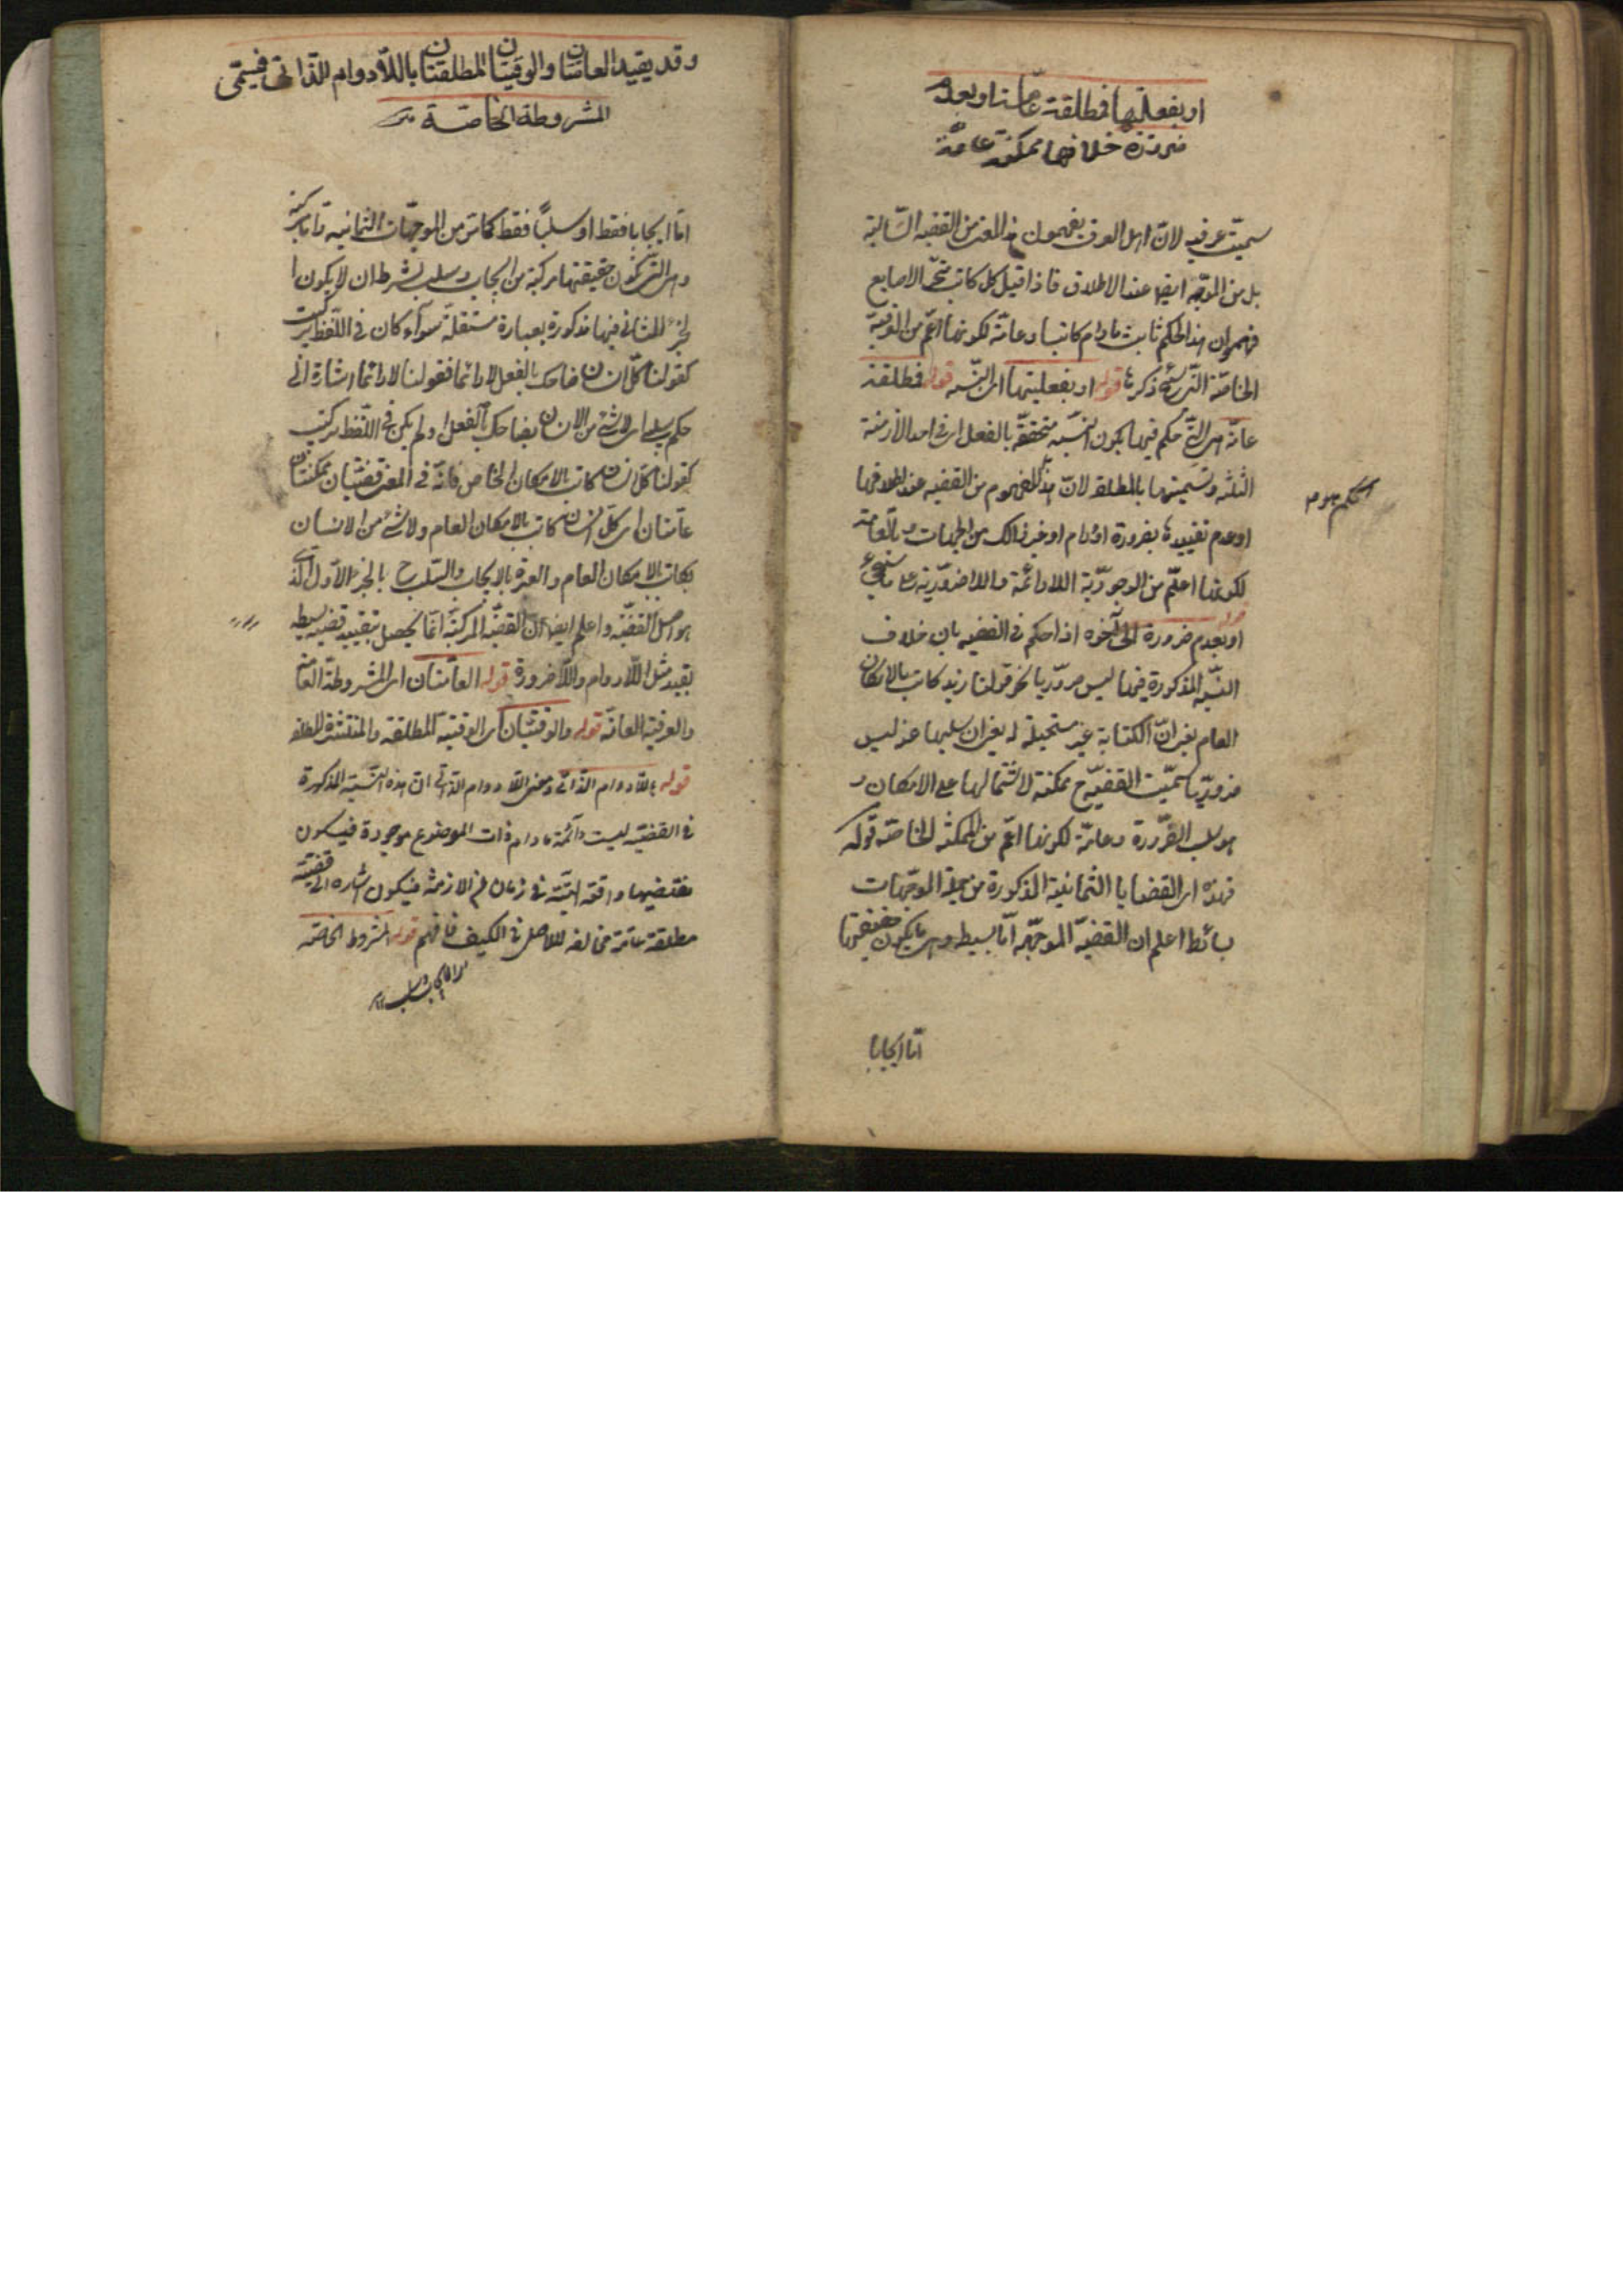 او بفعليتها فمطلقة عامة او بعدم
ضرورة خلافها ممكنة عامة
سميت عرفية لان اهل العرف يفهمون هذا المعنى من القضية السالبة
بل من الموجهة ايضا عند الاطلاق فاذا قيل كل كاتب متحرك الاصابع
فهموا ان هذا الحكم ثابت مادام كاتبا وعامة لكونها اعم من العرفية
الخاصة التي سيجئ ذكرها قوله او بفعليتها اى النسبة قوله فمطلقة
عامة هى التى حكم فيها بكون النسبة متحققة بالفعل اى فى احد الازمنة
الثلثة وتسميتها بالمطلقة لان هذا المفهوم من القضية عند اطلاقها
اوعدم تقييدها بضرورة او دوام او غير ذلك من الجهات وبالعامة
لكونها اعم من الوجودية اللادائمة واللاضرورية على ما سيجئ
قوله او بعدم ضرورة الى آخره اذا حكم فى القضية بان خلاف
النسبة المذكورة فيها ليس ضروريا نحو قولنا زيد كاتب بالامكان
العام بمعنى ان الكتابة غير مستحيلة له بمعنى ان سلبها عنه ليس
ضروريا سميت القضية ح ممكنة لاشتمالها على الامكان و
هو سلب الضرورة وعامة لكونها اعم من الممكنة الخاصة قوله
فهذه اى القضايا الثمانية المذكورة من جملة الموجهات
بسائط اعلم ان القضية الموجهة اما بسيطة وهى ما يكون حقيقتها
اما ايجابا
وقد يقيد العامتان والوقتيتان المطلقتان باللادوام الذاتى فيسمى
المشروطة الخاصة
اما ايجابا فقط او سلبا فقط كما مر من الموجهات الثمانية واما مركبة
وهى التى تكون حقيقتها مركبة من ايجاب وسلب بشرط ان لا يكون ا
لجزء الثانى فيها مذكورة بعبارة مستقلة سوآء كان فى اللفظ تركيب
كقولنا كل انسان ضاحك بالفعل لا دائما فقولنا لا دائما اشارة الى
حكم سلبى اى لا شئ من الانسان بضاحك بالفعل او لم يكن فى اللفظ تركيب
كقولنا كل انسان كاتب بالامكان الخاص فانه فى المعنى قضيتان ممكنتان
عامتان اى كل انسان كاتب بالامكان العام ولا شئ من الانسان
بكاتب بالامكان العام والعبرة بالايجاب والسلب ح بالجزء الاول الذى
هو اصل القضية واعلم ايضا ان القضية المركبة انما يحصل بتقييد قضية بسيطه
بقيد مثل اللادوام واللاضرورة قوله العامتان اى المشروطة العامة
والعرفية العامة قوله والوقتيتان اى الوقتية المطلقة والمنتشرة المطلقة
قوله باللادوام الذاتى ومعنى اللادوام الذاتى ان هذه النسبة المذكورة
فى القضية ليست دآئمة مادام ذات الموضوع موجودة فيكون
نقيضها واقعة البتة فى زمان من الازمنة فيكون اشارة الى قضية
مطلقة عامة مخالفة للاصل فى الكيف فافهم قوله المشروطة الخاصة